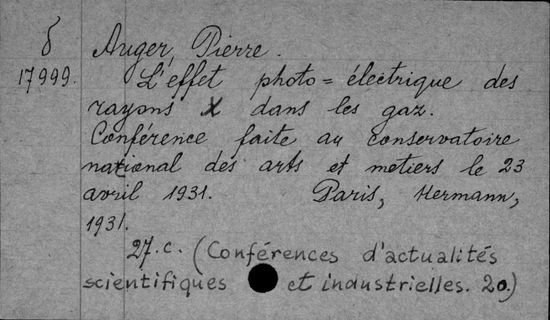 δ Auger, Pierre.
17999. L'effet photo=électrique des
rayons X dans les gaz.
Conférence faite au conservatoire
national des arts et metiers le 23
avril 1931. Paris, Hermann,
1931.
27.c. (Conférences d'actualités
scientifiques et industrielles. 20.)